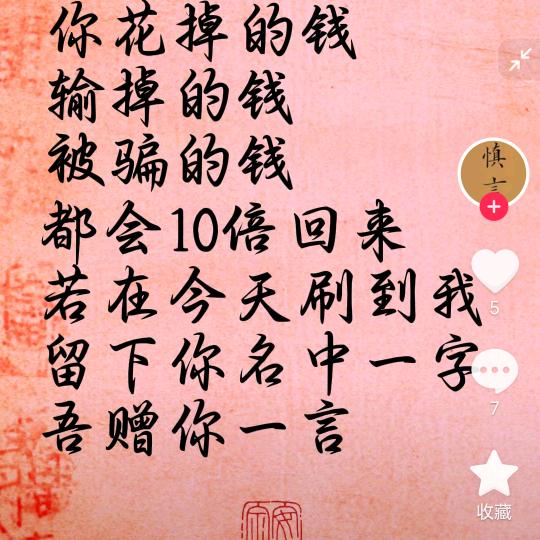 你花掉的钱
输掉的钱
被骗的钱
都会10倍回来
若在今天刷到我
留下你名中一字
吾赠你一言
慎
言
5
7
收藏